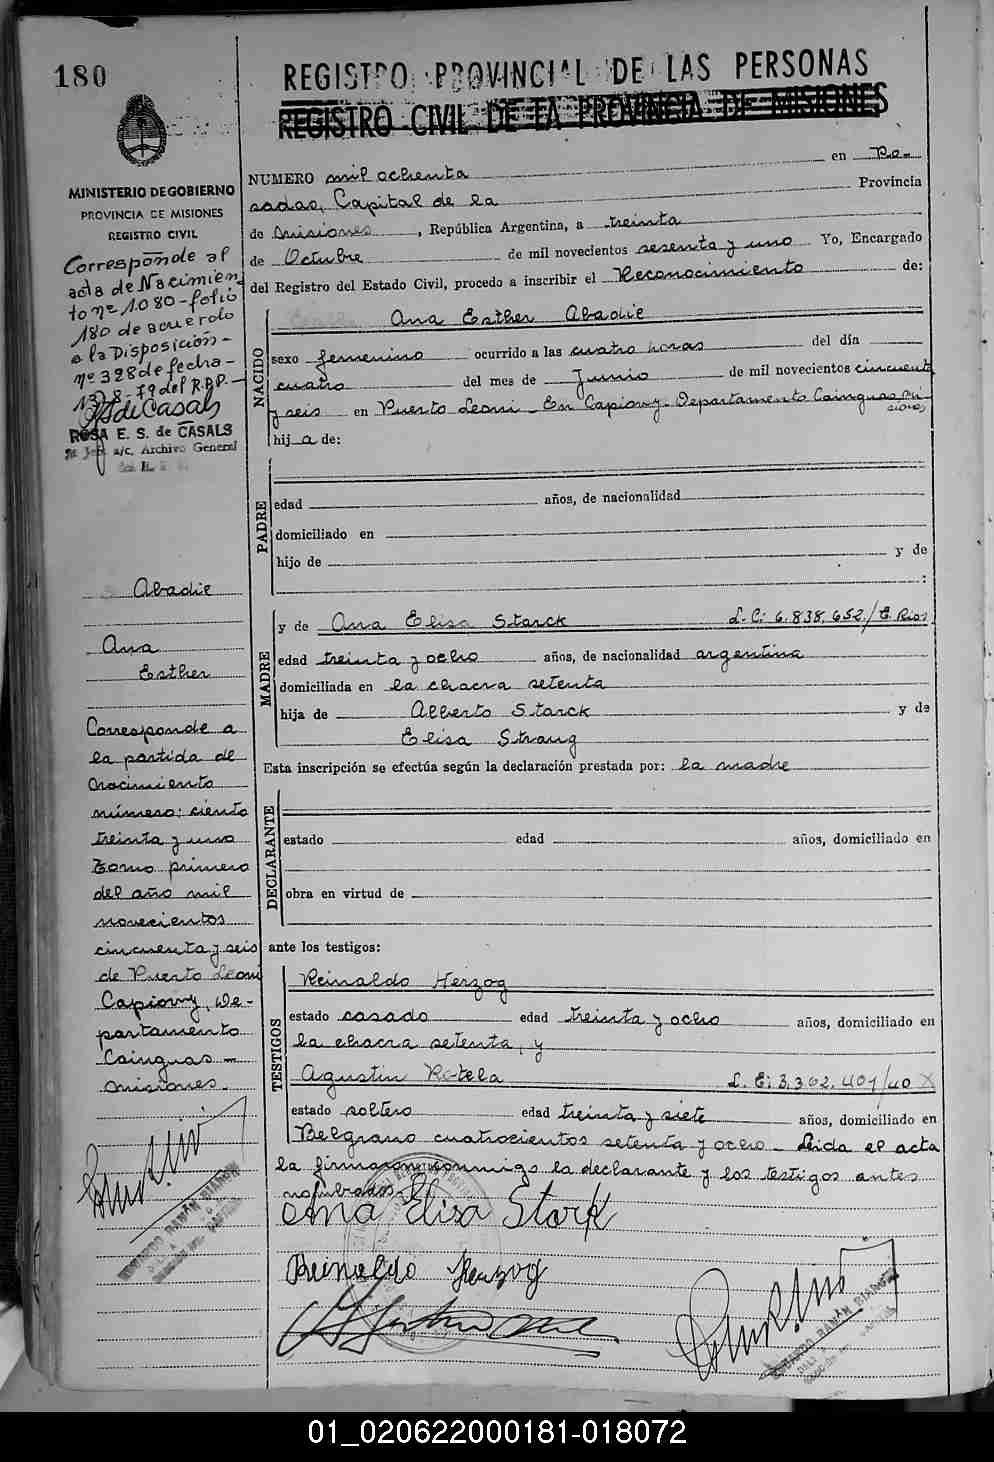 180
REGISTRO PROVINCIAL DE LAS PERSONAS
REGISTRO CIVIL DE LA PROVINCIA DE MISIONES
MINISTERIO DE GOBIERNO
PROVINCIA DE MISIONES
REGISTRO CIVIL
Corresponde al
acta de Nacimien
to nº 1.080-folio
180 de acuerdo
a la Disposición-
nº 328 de fecha-
13-8-79 del R.P.P.-
de Casals
ROSA E. S. de CASALS
a/c. Archivo General
Abadie
Ana
Esther
Corresponde a
la partida de
Nacimiento
número: ciento
treinta y uno
Tomo primero
del año mil
novecientos
cincuenta y seis
de Puerto Leoni
Capiovy, De-
partamento
Cainguas-
Misiones.
EDUARDO RAMÓN
NUMERO mil ochenta en Po-
sadas, Capital de la Provincia
de Misiones, República Argentina, a treinta
de Octubre de mil novecientos sesenta y uno Yo, Encargado
del Registro del Estado Civil, procedo a inscribir el Reconocimiento de:
NACIDO
Ana Esther Abadie
sexo femenino ocurrido a las cuatro horas del día
cuatro del mes de Junio de mil novecientos cincuenta
y seis en Puerto Leoni - En Capiovy - Departamento Cainguas, Mi-
siones
hij a de:
PADRE
edad años, de nacionalidad
domiciliado en
hijo de y de
:
MADRE
y de Ana Elisa Starck L. C: 6.838.652/E. Rios
edad treinta y ocho años, de nacionalidad argentina
domiciliada en la chacra setenta
hija de Alberto Starck y de
Elisa Strang
Esta inscripción se efectúa según la declaración prestada por: la madre
DECLARANTE
estado edad años, domiciliado en
obra en virtud de
ante los testigos:
TESTIGOS
Reinaldo Herzog
estado casado edad treinta y ocho años, domiciliado en
la chacra setenta, y
Agustin Rotela L. E: 3.362.401/40 X
estado soltero edad treinta y siete años, domiciliado en
Belgrano cuatrocientos setenta y ocho - Leida el acta
la firmaron conmigo la declarante y los testigos antes
nombrados.
Ana Elisa Stark
Reinaldo Herzog
EDUARDO RAMÓN
01_020622000181-018072